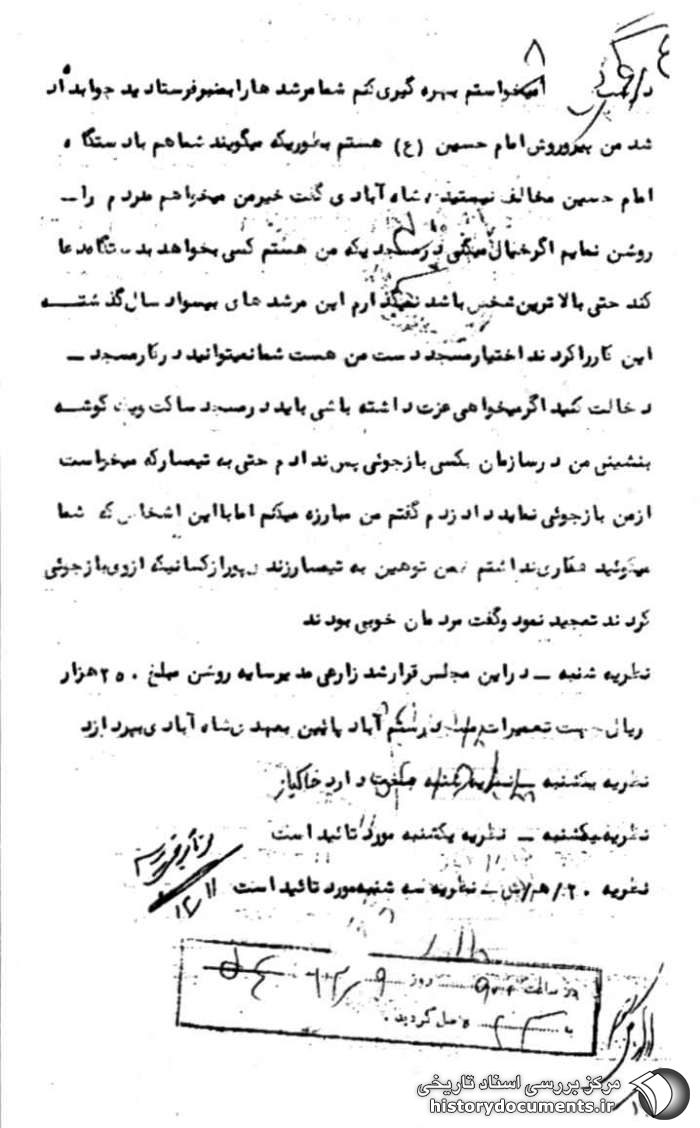 ۸
میخواستم بهره گیری کنم شما مرشد ها را بمنبر فرستادید جواب داد
شد من پیرو روش امام حسین (ع) هستم بطوریکه میگویند شما هم با دستگاه
امام حسین مخالف نیستید شاه آبادی گفت خیر من میخواهم مردم را ـ
روشن نمایم اگر خیال میکنی در مسجدیکه من هستم کسی بخواهد بدستگاه دعا
کند حتی بالاترین شخص باشد نمیگذارم این مرشد های بیسواد سال گذشتــه
این کار را کردند اختیار مسجد دست من هست شما نمیتوانید در کار مسجد ـ
دخالت کنید اگر میخواهی عزت داشته باشی باید در مسجد ساکت و یک گوشــه
بنشینی من در سازمان بکسی بازجوئی پس ندادم حتی به تیمسار که میخواست
از من بازجوئی نماید داد زدم گفتم من مبارزه میکنم اما با این اشخاص که شما
میگوئید همکاری نداشتم ضمن توهین به تیمسار زندی پور از کسانیکه از وی بازجوئی
کردند تمجید نمود و گفت مردمان خوبی بودند
نظریه شنبه ـ در این مجلس قرار شد زارعی مدیر سایه روشن مبلغ ۲۵۰ هزار
ریال جهت تعمیرات مسجد رستم آباد پائین بمهدی شاه آبادی بپردازد
نظریه یکشنبه ـ نظریه شنبه صحت دارد خاکباز
نظریه سه شنبه ـ نظریه یکشنبه مورد تائید است
نظریه ۲۰ / هـ / ش ـ نظریه سه شنبه مورد تائید است
۱۲/۱۱
در ساعت ۹۰۰ روز ۹
به حاصل گردید .
مرکز بررسی اسناد تاریخی
historydocuments.ir